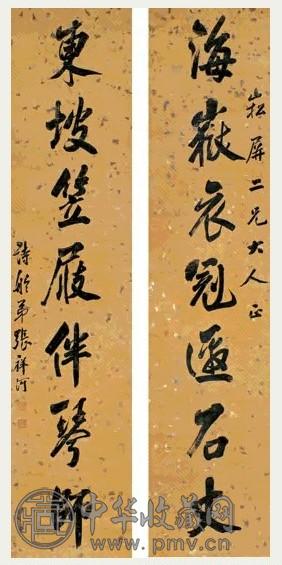 崧屏二兄大人正
海嶽衣冠石丈
東坡笠屐伴琴
詩舲弟張祥河
中华收藏网
www.pmv.cn